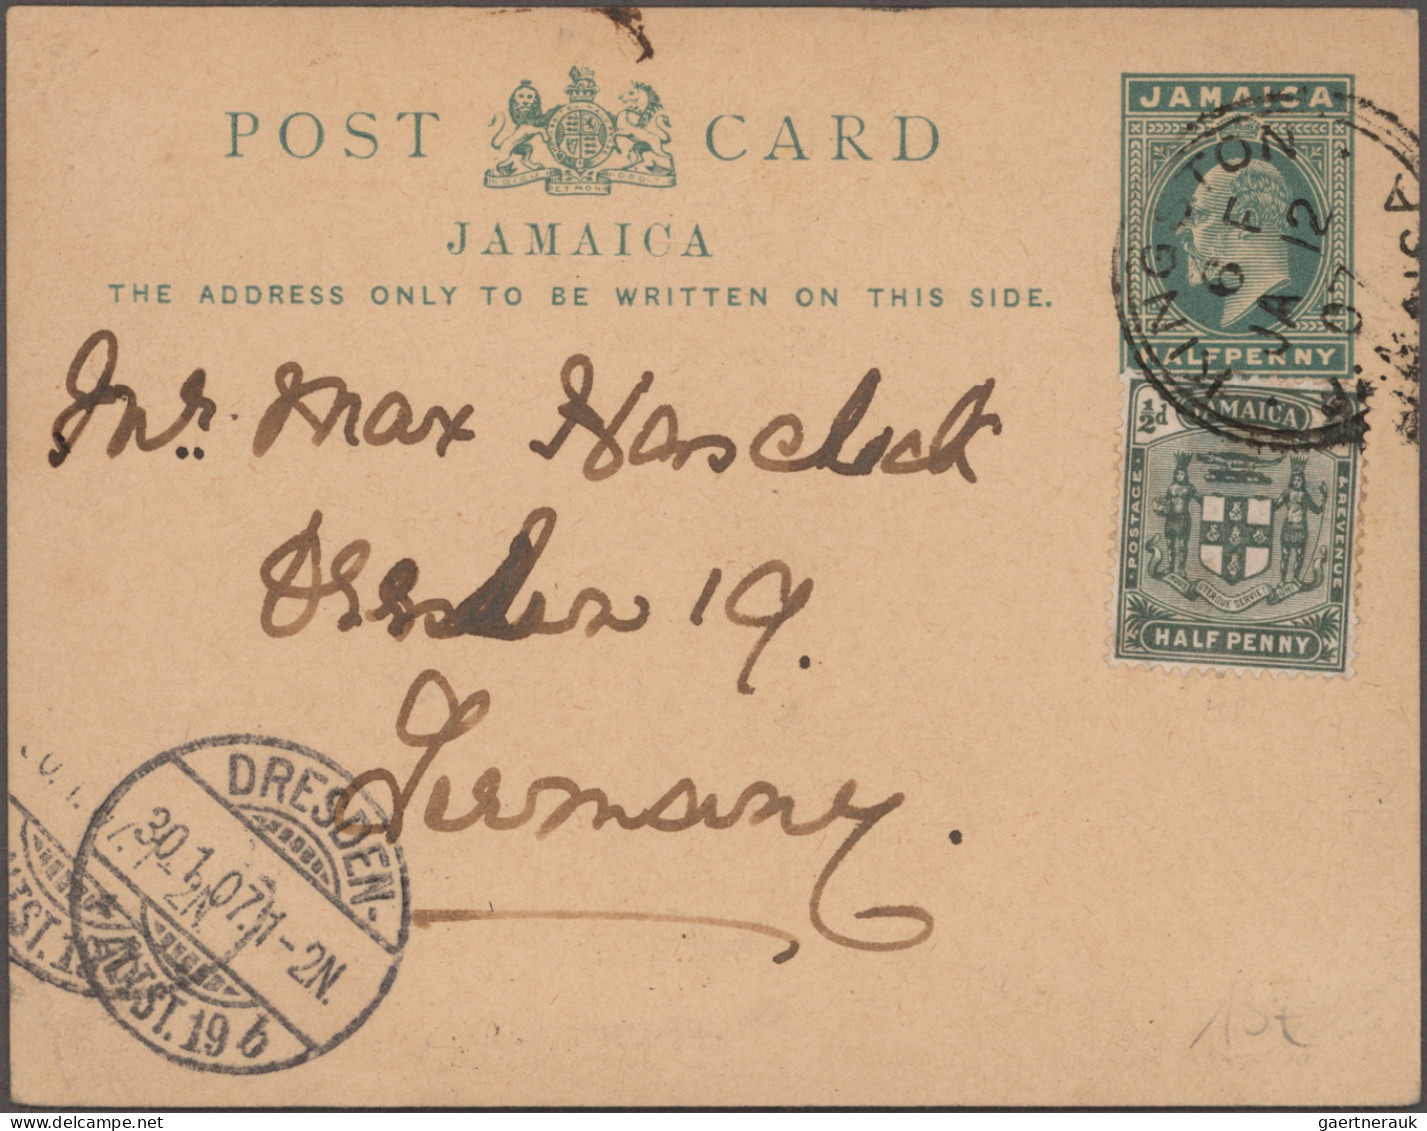 POST CARD
JAMAICA
THE ADDRESS ONLY TO BE WRITTEN ON THIS SIDE.
JAMAICA
HALFPENNY
KINGSTON
6 F
JA 12
07
½d JAMAICA
POSTAGE & REVENUE
HALF PENNY
Mr. Max
Dresden 19.
Germany.
DRESDEN-
30.1.07. 1-2N.
ALTST. 19 b
TST. 1
15€
Delcampe.net
gaertnerauk